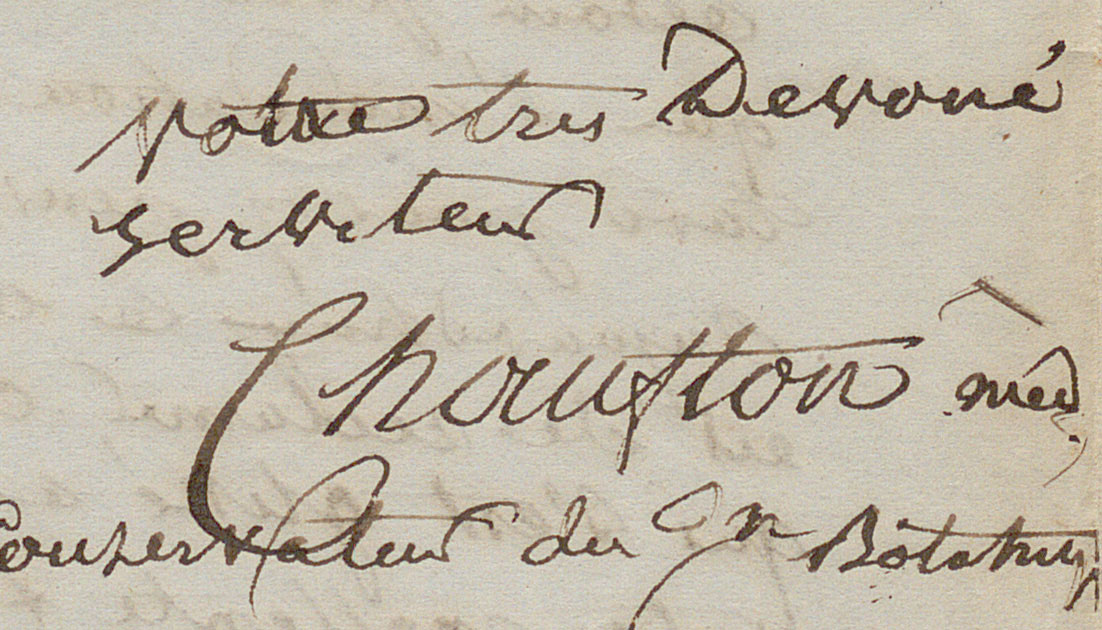 votre tres Devoué
serviteur
Chouston méd
Conservateur du Jn Botaniq